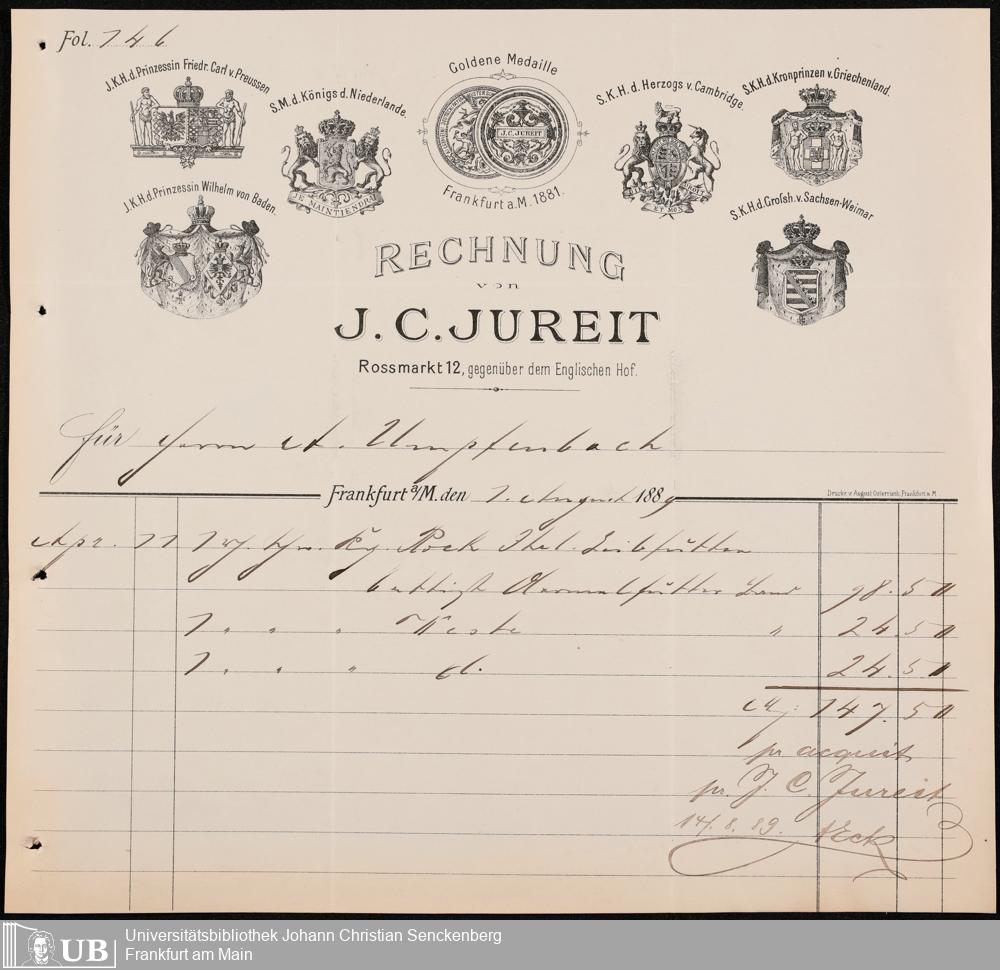 Fol. 146
J.K.H.d.Prinzessin Friedr. Carl v. Preussen
S.M.d.Königs d.Niederlande.
Goldene Medaille
S.K.H.d.Herzogs v. Cambridge.
S.K.H.d.Kronprinzen v. Griechenland.
J.C.JUREIT
JE MAINTIENDRAI
ET MON
Frankfurt a.M. 1881.
J.K.H.d.Prinzessin Wilhelm von Baden.
S.K.H.d.Grofsh.v.Sachsen-Weimar
RECHNUNG
von
J.C.JUREIT
Rossmarkt 12, gegenüber dem Englischen Hof.
für Herrn A. Umpfenbach
Frankfurt a/M. den 1. August 1889
Druck v. August Osterrieth, Frankfurt a. M.
Apr. 11 1 Rock Leibfutter
Aermelfutter 98.50
1 " " " Weste " 24.50
1 " " " d. 24.50
M: 147.50
pr acquit
pr. J. C. Jureit
14/.8.89. Eck
UB Universitätsbibliothek Johann Christian Senckenberg
Frankfurt am Main